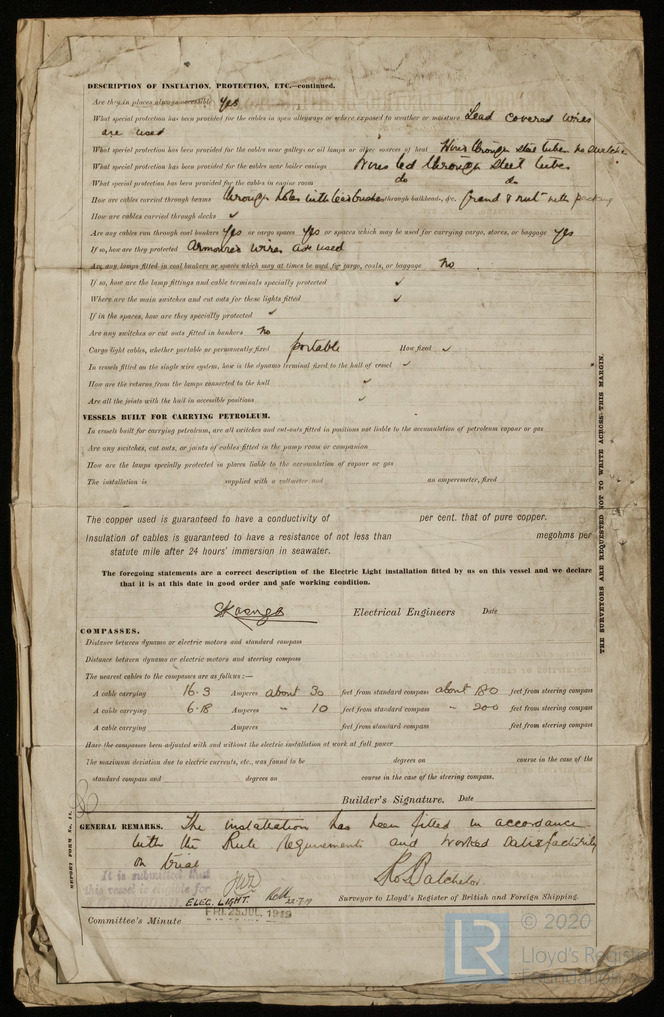 DESCRIPTION OF INSULATION, PROTECTION, ETC.—continued.
Are they in places always accessible Yes
What special protection has been provided for the cables in open alleyways or where exposed to weather or moisture Lead covered wires
are used
What special protection has been provided for the cables near galleys or oil lamps or other sources of heat Wires through steel tubes
What special protection has been provided for the cables near boiler casings Wires led through steel tubes
What special protection has been provided for the cables in engine room do do
How are cables carried through beams through holes with lead bushes through bulkheads, &c. Gland & nut with packing
How are cables carried through decks ✓
Are any cables run through coal bunkers Yes or cargo spaces Yes or spaces which may be used for carrying cargo, stores, or baggage Yes
If so, how are they protected Armoured wires are used
Are any lamps fitted in coal bunkers or spaces which may at times be used for cargo, coals, or baggage No
If so, how are the lamp fittings and cable terminals specially protected ✓
Where are the main switches and cut outs for these lights fitted ✓
If in the spaces, how are they specially protected ✓
Are any switches or cut outs fitted in bunkers No
Cargo light cables, whether portable or permanently fixed portable How fixed ✓
In vessels fitted on the single wire system, how is the dynamo terminal fixed to the hull of vessel ✓
How are the returns from the lamps connected to the hull ✓
Are all the joints with the hull in accessible positions ✓
VESSELS BUILT FOR CARRYING PETROLEUM.
In vessels built for carrying petroleum, are all switches and cut-outs fitted in positions not liable to the accumulation of petroleum vapour or gas
Are any switches, cut outs, or joints of cables fitted in the pump room or companion
How are the lamps specially protected in places liable to the accumulation of vapour or gas
The installation is supplied with a voltmeter and an amperemeter, fixed
The copper used is guaranteed to have a conductivity of per cent. that of pure copper.
Insulation of cables is guaranteed to have a resistance of not less than megohms per
statute mile after 24 hours' immersion in seawater.
The foregoing statements are a correct description of the Electric Light installation fitted by us on this vessel and we declare
that it is at this date in good order and safe working condition.
Electrical Engineers Date
COMPASSES.
Distance between dynamo or electric motors and standard compass
Distance between dynamo or electric motors and steering compass
The nearest cables to the compasses are as follows:—
A cable carrying 16.3 Amperes about 30 feet from standard compass about 180 feet from steering compass
A cable carrying 6.18 Amperes " 10 feet from standard compass " 200 feet from steering compass
A cable carrying Amperes feet from standard compass feet from steering compass
Have the compasses been adjusted with and without the electric installation at work at full power
The maximum deviation due to electric currents, etc., was found to be degrees on course in the case of the
standard compass and degrees on course in the case of the steering compass.
Builder's Signature. Date
GENERAL REMARKS. The installation has been fitted in accordance
with the Rule Requirements and worked satisfactorily
on trial
It is submitted that
this vessel is eligible for
ELEC. LIGHT. 22-7-19
Batchelor
Surveyor to Lloyd's Register of British and Foreign Shipping.
FRI. 25 JUL. 1919
Committee's Minute
REPORT FORM No. 11.
THE SURVEYORS ARE REQUESTED NOT TO WRITE ACROSS THIS MARGIN.
LR © 2020
Lloyd's Register
Foundation